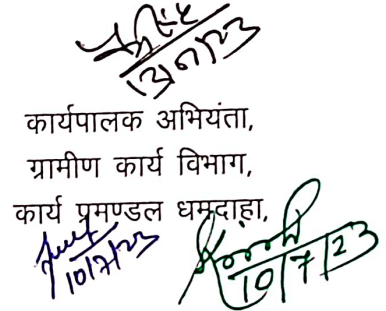 13/7/23
कार्यपालक अभियंता,
ग्रामीण कार्य विभाग,
कार्य प्रमण्डल धमदाहा,
10/7/23
10/7/23